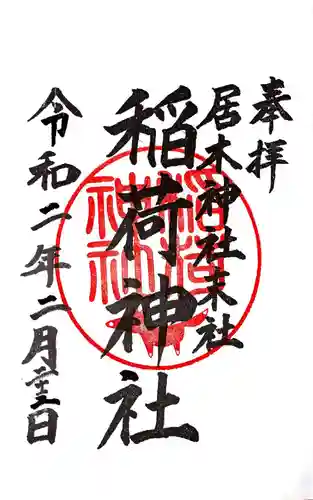 奉拝
居木神社末社
稲荷神社
令和二年二月二十三日
稲荷神社